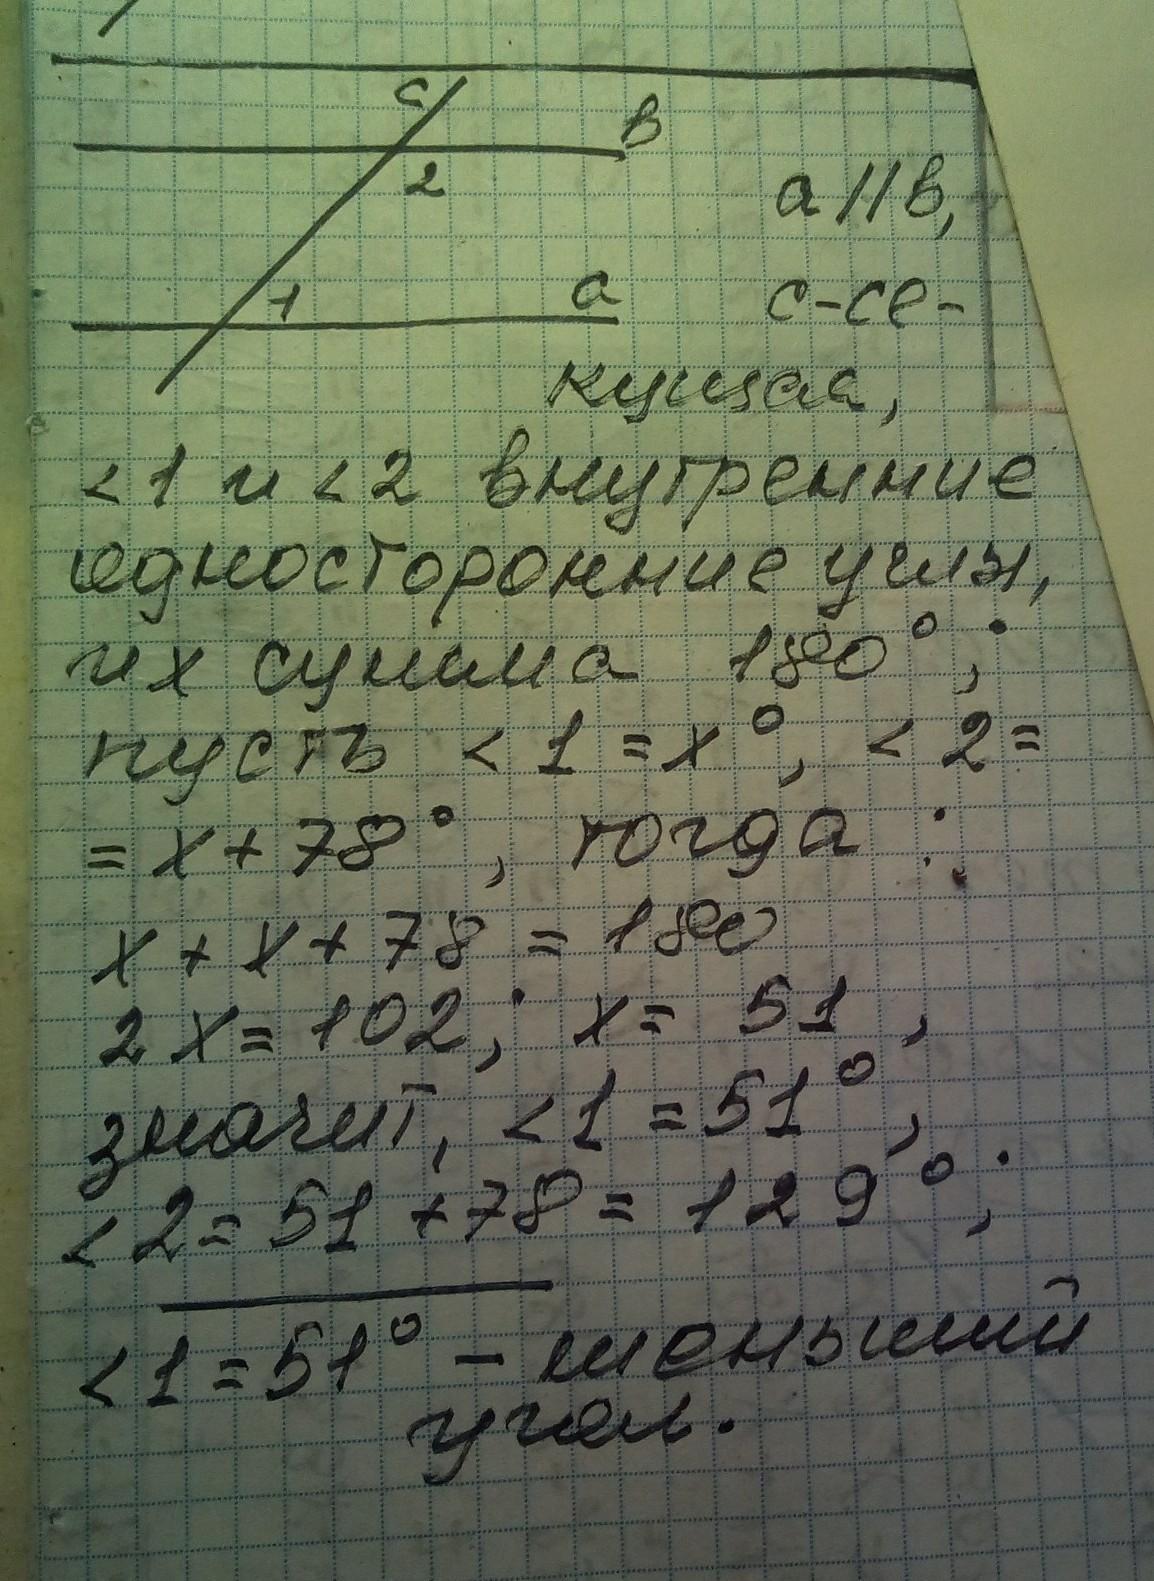 c
в
2
a || в,
1
a
c-се-
кущая,
<1 и <2 внутренние
односторонние углы,
их сумма 180°;
пусть <1 = x°, <2 =
= x + 78°, тогда :
x + x + 78 = 180
2x = 102; x = 51,
значит, <1 = 51°,
<2 = 51 + 78 = 129°;
<1 = 51° - меньший
угол.